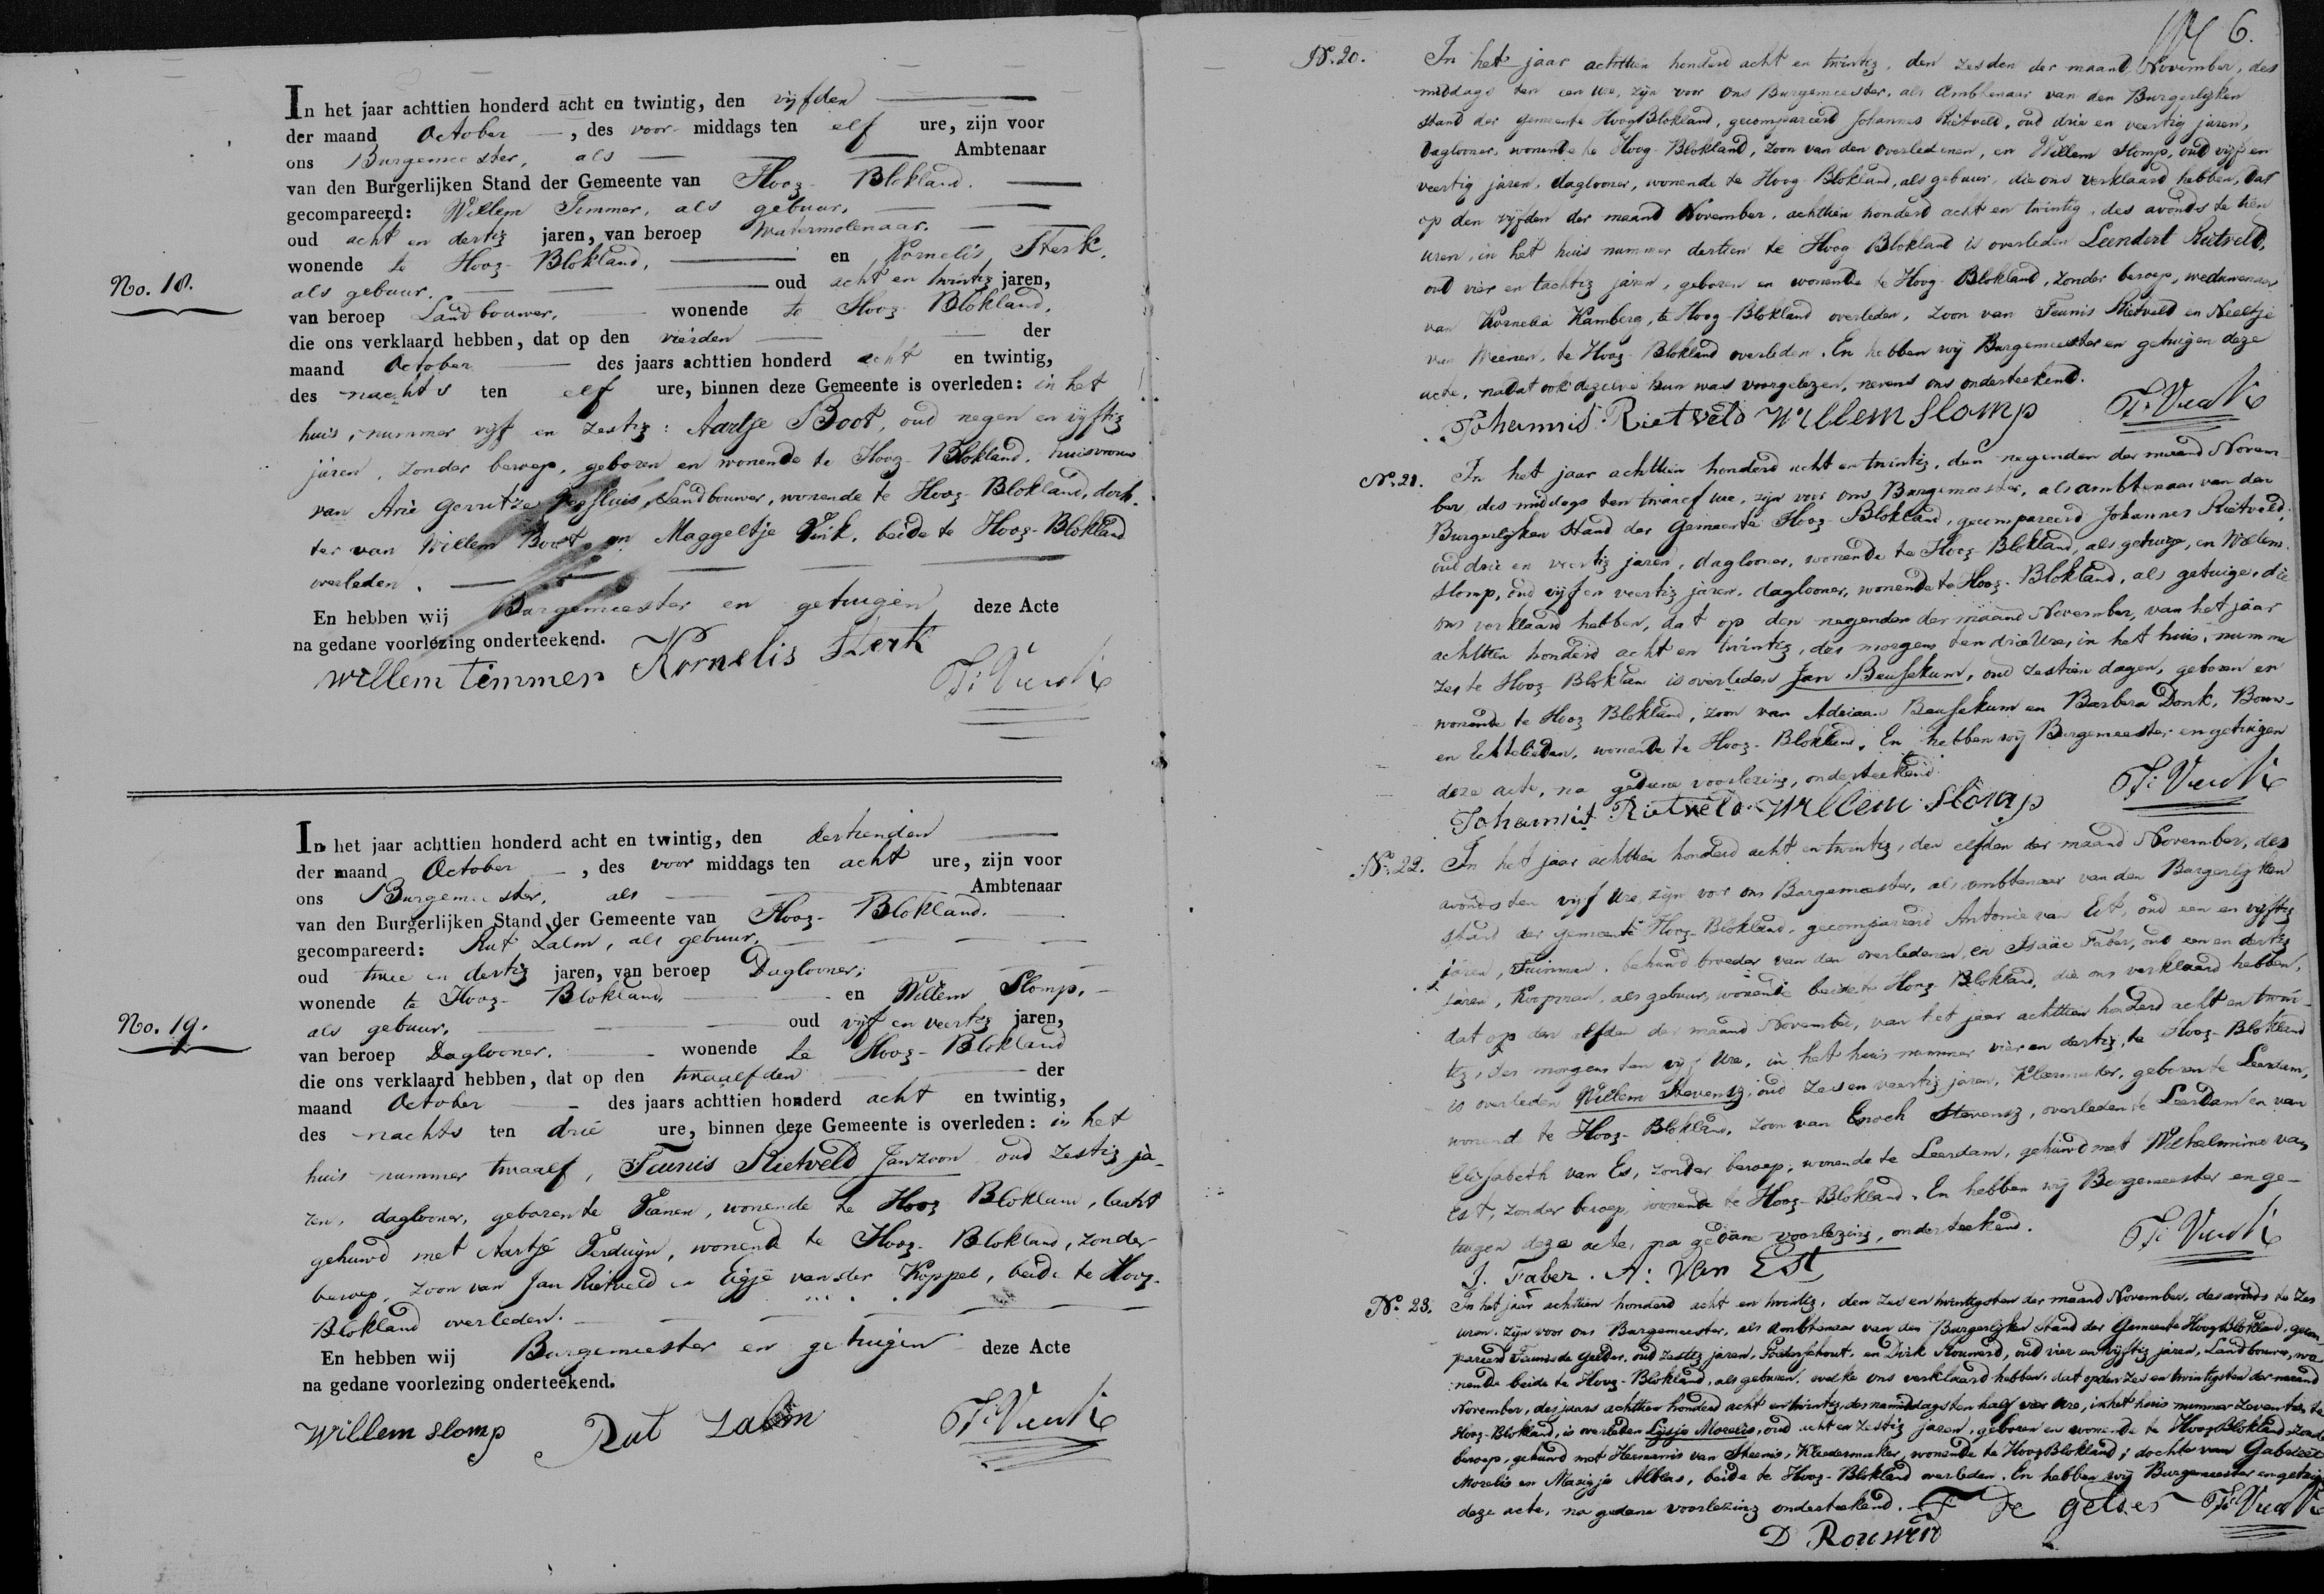 In het jaar achttien honderd acht en twintig, den vijfden
der maand October, des voor- middags ten elf ure, zijn voor
ons Burgemeester, als Ambtenaar
van den Burgerlijken Stand der Gemeente van Hoog-Blokland.
gecompareerd: Willem Timmer, als gebuur,
oud acht en dertig jaren, van beroep Watermolenaar.
wonende te Hoog-Blokland, en Kornelis Sterk.
No. 18.
als gebuur. oud acht en twintig jaren,
van beroep Landbouwer, wonende te Hoog Blokland,
die ons verklaard hebben, dat op den vierden der
maand October des jaars achttien honderd acht en twintig,
des nachts ten elf ure, binnen deze Gemeente is overleden: in het
huis, nummer vijf en zestig: Aartje Boot, oud negen en vijftig
jaren, zonder beroep, geboren en wonende te Hoog-Blokland, huisvrouw
van Arie Gerritze Versluis, Landbouwer, wonende te Hoog-Blokland, doch-
ter van Willem Boot en Maggeltje Vink, beide te Hoog-Blokland
overleden.
En hebben wij Burgemeester en getuigen deze Acte
na gedane voorlezing onderteekend.
Willem timmer Kornelis Sterk
In het jaar achttien honderd acht en twintig, den dertienden
der maand October, des voor middags ten acht ure, zijn voor
ons Burgemeester, als Ambtenaar
van den Burgerlijken Stand der Gemeente van Hoog-Blokland.
gecompareerd: Rut Zalm, als gebuur,
oud twee en dertig jaren, van beroep Daglooner,
wonende te Hoog-Blokland, en Willem Slomp,
No. 19.
als gebuur, oud vijf en veertig jaren,
van beroep Daglooner. wonende te Hoog-Blokland
die ons verklaard hebben, dat op den twaalfden der
maand October des jaars achttien honderd acht en twintig,
des nachts ten drie ure, binnen deze Gemeente is overleden: in het
huis nummer twaalf, Teunis Rietveld Janzoon oud zestig ja-
ren, daglooner, geboren te Vianen, wonende te Hoog Blokland, laatst
gehuwd met Aartje Verduijn, wonende te Hoog-Blokland, zonder
beroep, zoon van Jan Rietveld en Eigje van der Koppel, beide te Hoog-
Blokland overleden.
En hebben wij Burgemeester en getuigen deze Acte
na gedane voorlezing onderteekend.
Willem slomp Rut Zalm
6.
No. 20. In het jaar achttien honderd acht en twintig, den zesden der maand November, des
middags ten een ure, zijn voor ons Burgemeester, als Ambtenaar van den Burgerlijken
stand der Gemeente Hoog Blokland, gecompareerd Johannes Rietveld, oud drie en veertig jaren,
Daglooner, wonende te Hoog-Blokland, zoon van den overledenen, en Willem Slomp, oud vijf en
veertig jaren, daglooner, wonende te Hoog Blokland, als gebuur, die ons verklaard hebben, dat
op den vijfden der maand November, achttien honderd acht en twintig, des avonds te tien
uren, in het huis nummer dertien te Hoog Blokland is overleden Leendert Rietveld,
oud vier en tachtig jaren, geboren en wonende te Hoog-Blokland, zonder beroep, weduwenaar
van Kornelia Kamberg, te Hoog-Blokland overleden, zoon van Teunis Rietveld en Neeltje
van Weenen, te Hoog-Blokland overleden. En hebben wij Burgemeester en getuigen deze
acte, nadat ook dezelve hun was voorgelezen, nevens ons onderteekend.
Johannis Rietveld Willem Slomp
No. 21. In het jaar achttien honderd acht en twintig, den negenden der maand Novem-
ber, des middags ten twaalf ure, zijn voor ons Burgemeester, als ambtenaar van den
Burgerlijken Stand der Gemeente Hoog-Blokland, gecompareerd Johannes Rietveld,
oud drie en veertig jaren, daglooner, wonende te Hoog-Blokland, als getuige, en Willem
Slomp, oud vijf en veertig jaren, daglooner, wonende te Hoog-Blokland, als getuige, die
ons verklaard hebben, dat op den negenden der maand November, van het jaar
achttien honderd acht en twintig, des morgens ten drie Ure, in het huis, nummer
zes te Hoog-Blokland is overleden Jan Beusekum, oud zestien dagen, geboren en
wonende te Hoog Blokland, zoon van Adriaan Beusekum en Barbera Donk, Bouw-
en Echtelieden, wonende te Hoog-Blokland. En hebben wij Burgemeester en getuigen
deze acte, na gedane voorlezing, onderteekend.
Johannis Rietveld Willem Slomp
No. 22. In het jaar achttien honderd acht en twintig, den elfden der maand November, des
avonds ten vijf Ure, zijn voor ons Burgemeester, als ambtenaar van den Burgerlijken
stand der gemeente Hoog-Blokland, gecompareerd Antonie van Est, oud een en vijftig
jaren, Tuinman, behuwd broeder van den overledenen, en Isaäc Faber, oud een en dertig
jaren, Koopman, als gebuur, wonende beide te Hoog-Blokland, die ons verklaard hebben,
dat op den elfden der maand November, van het jaar achttien honderd acht en twin-
tig, des morgens ten vijf Ure, in het huis nummer vier en dertig, te Hoog-Blokland
is overleden Willem Stevensz, oud zes en veertig jaren, Kleermaker, geboren te Leerdam,
wonende te Hoog-Blokland, zoon van Enoch Stevensz, overleden te Leerdam en van
Elisabeth van Es, zonder beroep, wonende te Leerdam, gehuwd met Wilhelmina van
Est, zonder beroep, wonende te Hoog-Blokland. En hebben wij Burgemeester en ge-
tuigen deze acte, na gedane voorlezing, onderteekend.
I. Faber. A: Van Est
No. 23. In het jaar achttien honderd acht en twintig, den zes en twintigsten der maand November, des avonds te zes
uren, zijn voor ons Burgemeester, als Ambtenaar van den Burgerlijken Stand der Gemeente Hoog Blokland, gecom-
pareerd Teunis de Gelder, oud zestig jaren, en Dirk Rouwend, oud vier en vijftig jaren, Landbouwer, wo-
nende beide te Hoog-Blokland, als geburen, welke ons verklaard hebben, dat op den zes en twintigsten der maand
November, des jaars achttien honderd acht en twintig, des namiddags ten half vier Ure, in het huis nummer zeventien te
Hoog-Blokland, is overleden Lijsje Morelis, oud acht en zestig jaren, geboren en wonende te Hoog Blokland, zonder
beroep, gehuwd met Hermanus van Steenis, Kleedermaker, wonende te Hoog Blokland; dochter van Gabriel
Morelis en Marigje Alblas, beide te Hoog-Blokland overleden. En hebben wij Burgemeester en getuigen
deze acte, na gedane voorlezing onderteekend. T De gelder
D Rouwend